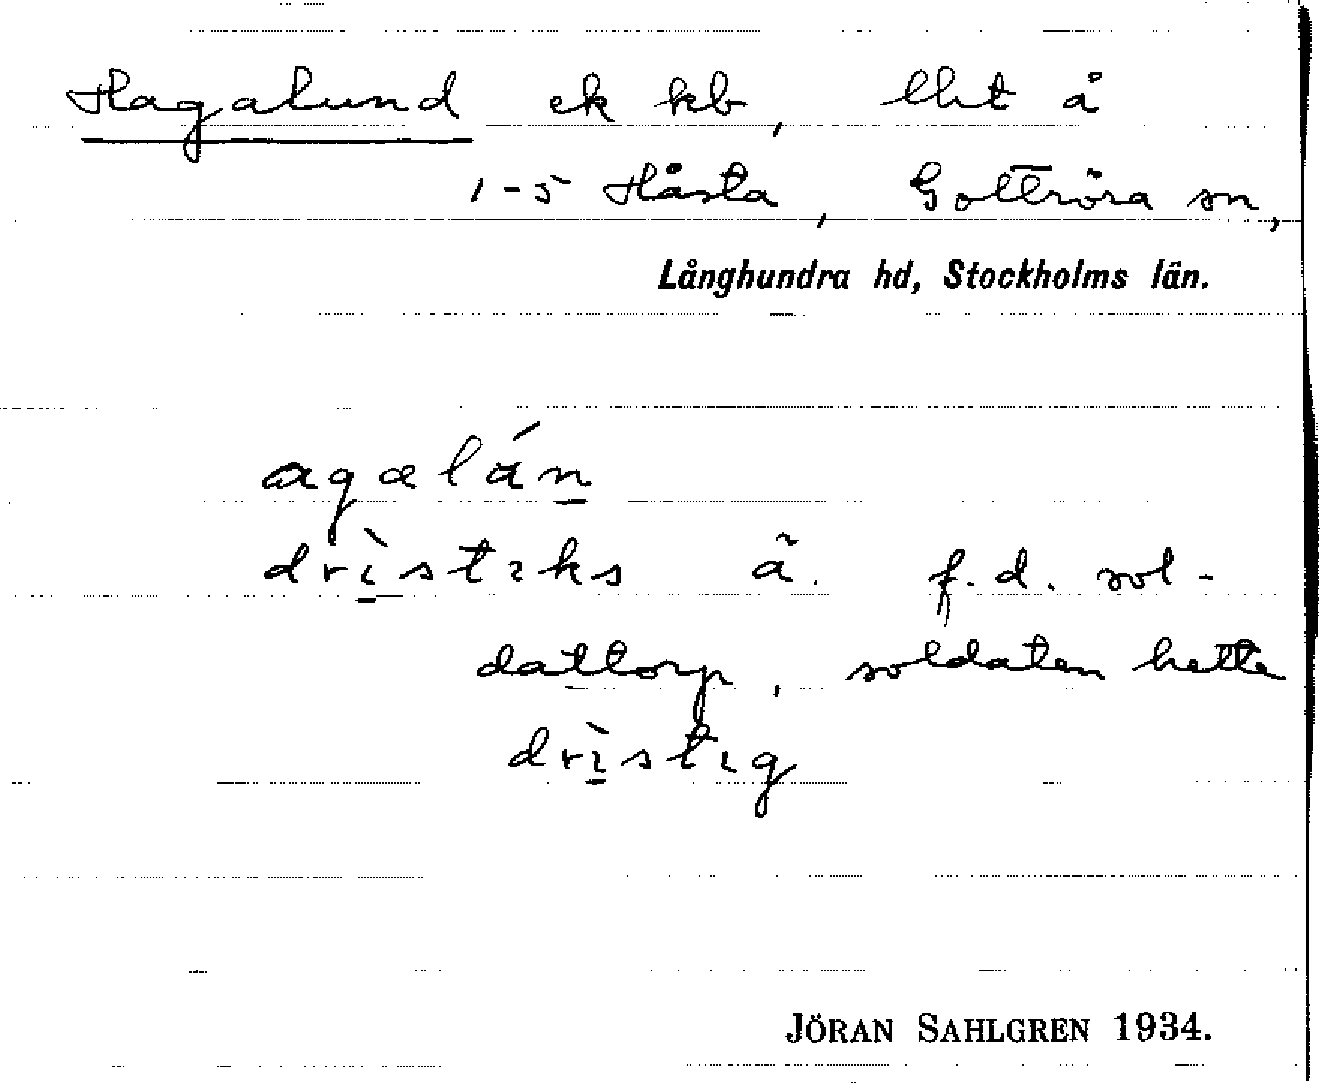 Hagalund ek kb, lht å
1-5 Håsta, Gottröra sn,
Långhundra hd, Stockholms län.
agalán
drìstɩks ä. f.d. sol-
dattorp, soldaten hette
drìstɩg
JÖRAN SAHLGREN 1934.